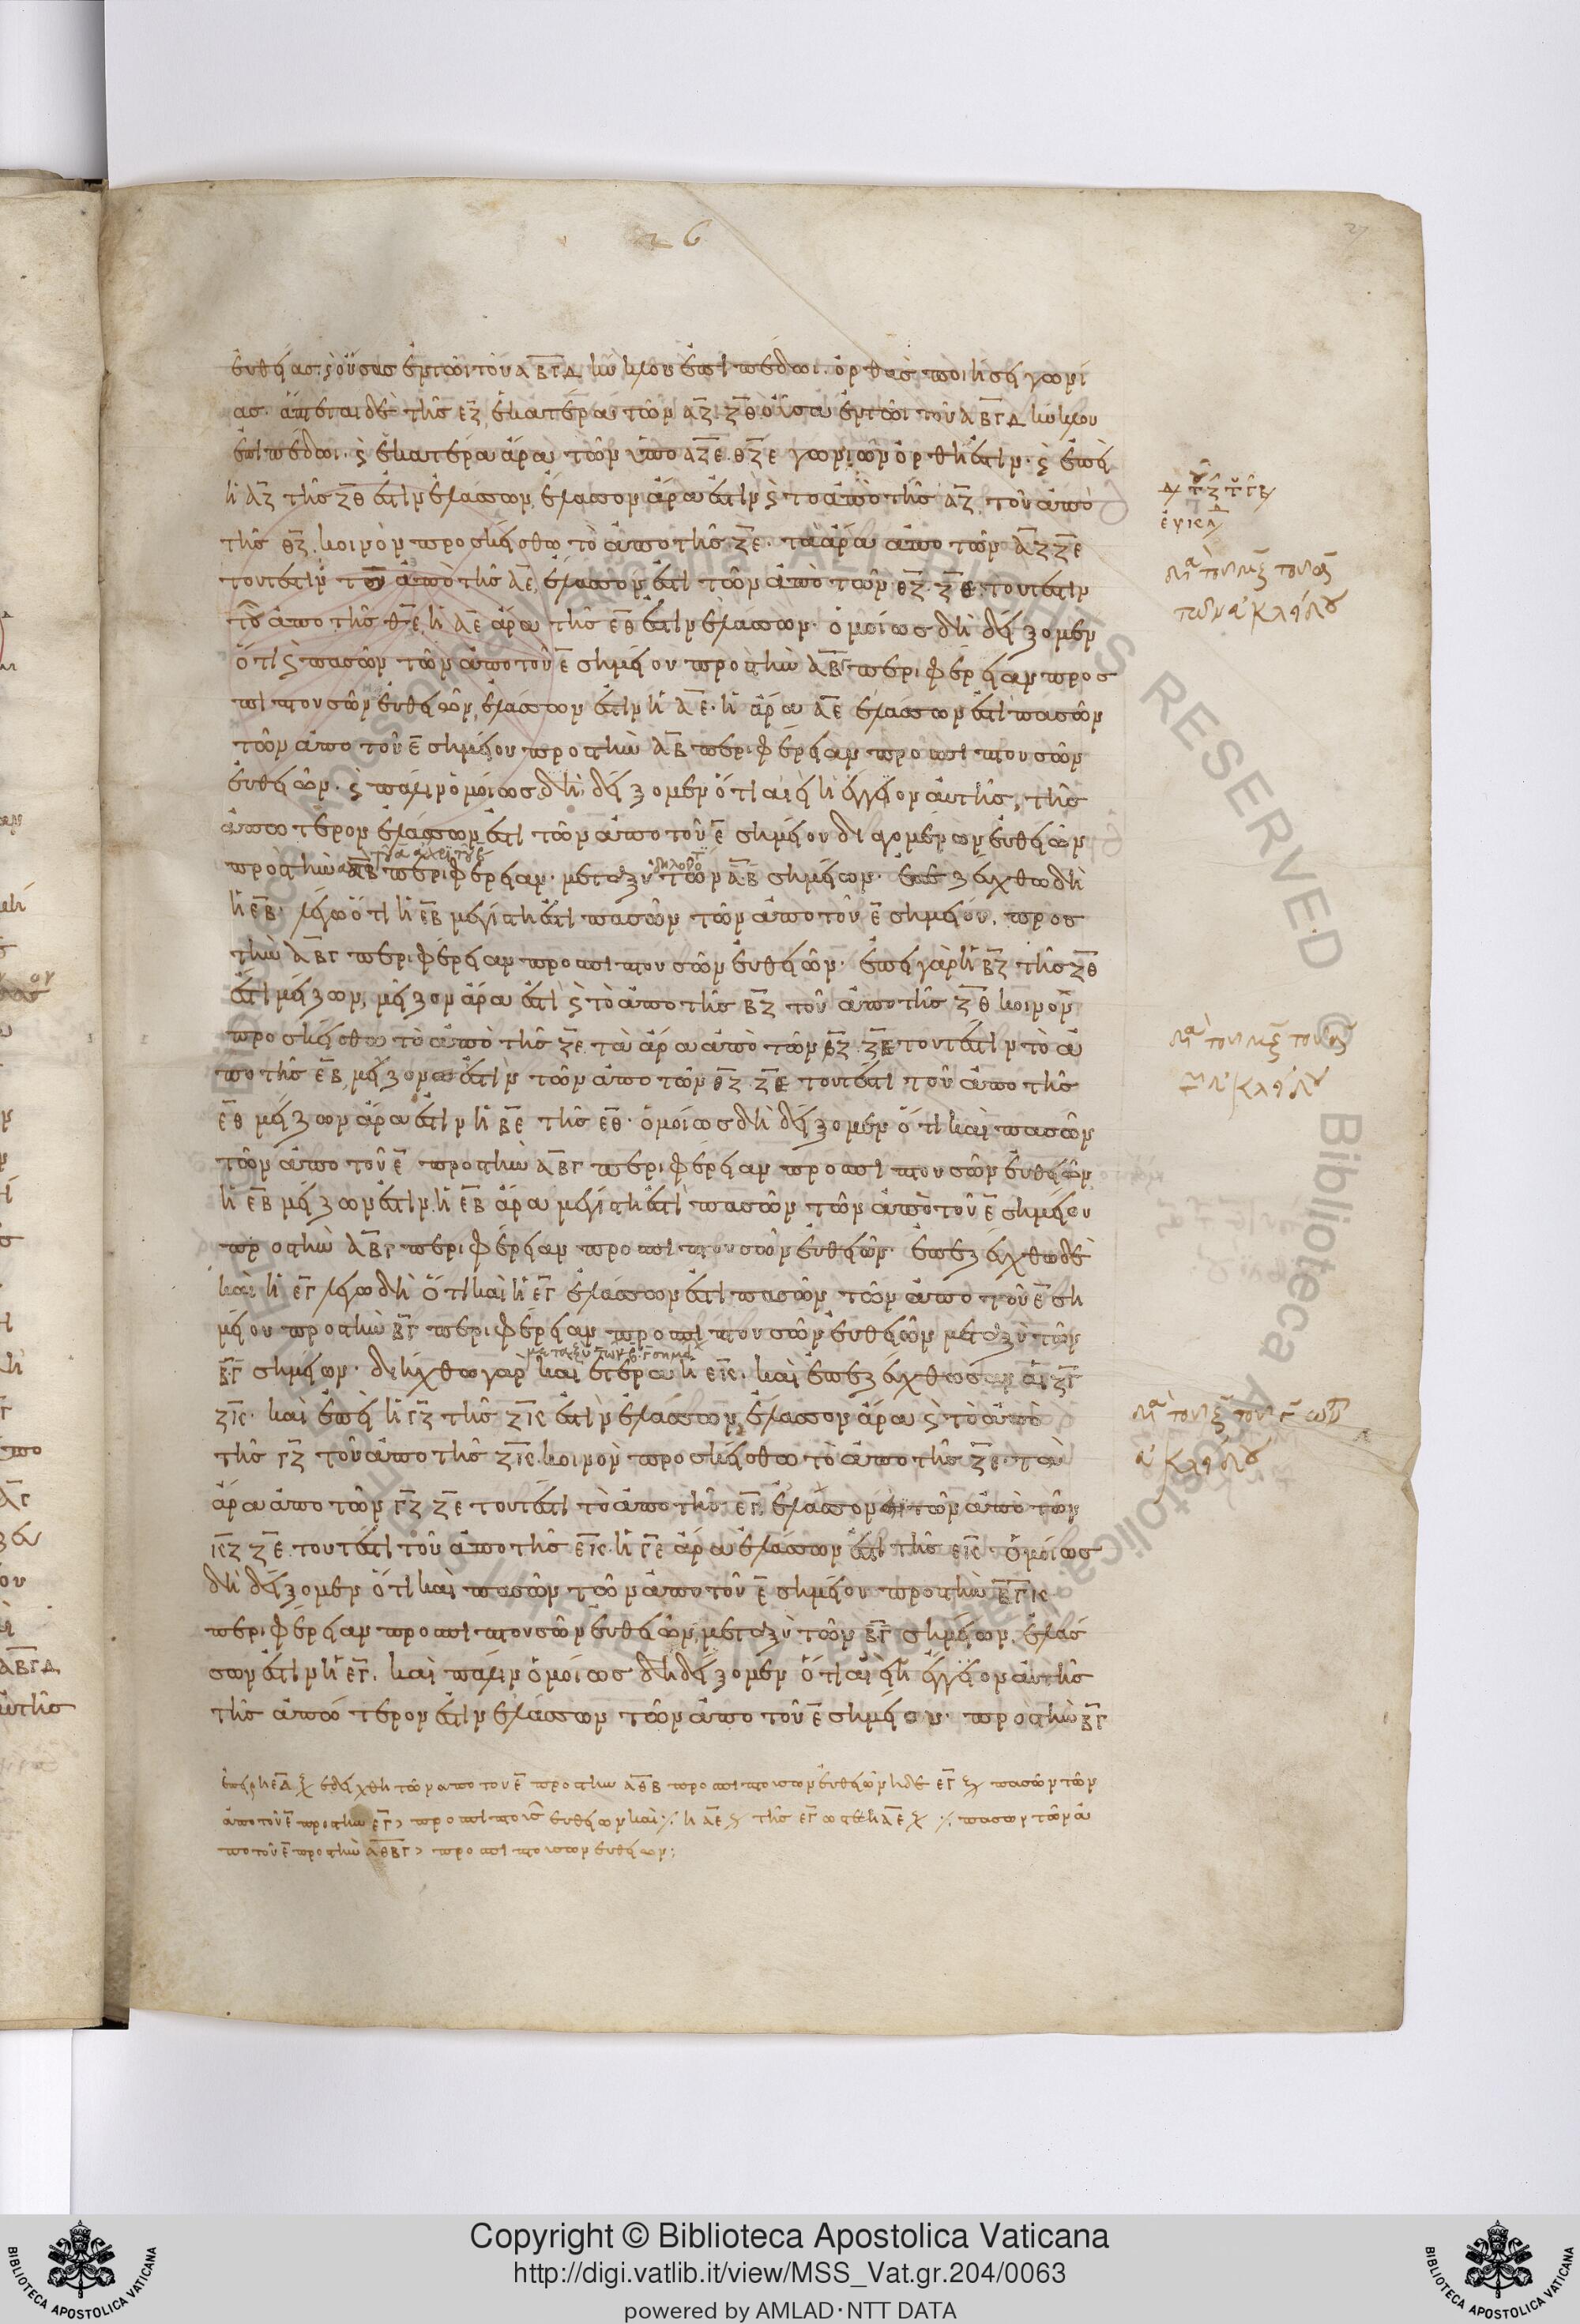 26
27
εὐθείας καὶ οὔσας ἐν τῶι τοῦ ΑΒΓΔ κύκλου ἐπιπέδωι ὀρθὰς ποιήσει γωνί
ας. ἅπτεται δὲ τῆς ΕΖ ἑκατέρα τῶν ΑΖ ΖΘ οὖσα ἐν τῶι τοῦ ΑΒΓΔ κύκλου
ἐπιπέδωι. καὶ ἑκατέρα ἄρα τῶν ὑπὸ ΑΖΕ ΘΖΕ γωνιῶν ὀρθή ἐστιν. καὶ ἐπεὶ
ἡ ΑΖ τῆς ΖΘ ἐστὶν ἐλάσσων, ἔλασσον ἄρα ἐστὶν καὶ τὸ ἀπὸ τῆς ΑΖ τοῦ ἀπὸ
τῆς ΘΖ. κοινὸν προσκείσθω τὸ ἀπὸ τῆς ΖΕ. τὰ ἄρα ἀπὸ τῶν ΑΖ ΖΕ
τουτέστιν τοῦ ἀπὸ τῆς ΑΕ, ἔλασσον ἐστὶ τῶν ἀπὸ τῶν ΘΖ ΖΕ, τουτέστιν
τοῦ ἀπὸ τῆς ΘΕ, ἡ ΑΕ ἄρα τῆς ΕΘ ἐστὶν ἐλάσσων. ὁμοίως δὴ δείξομεν
ὅτι καὶ πασῶν τῶν ἀπὸ τοῦ Ε σημείου πρὸς τὴν ΑΒΓ περιφέρειαν προσ
πιπτουσῶν εὐθειῶν, ἐλάσσων ἐστὶν ἡ ΑΕ. ἡ ἄρα ΑΕ ἐλάσσων ἐστὶ πασῶν
τῶν ἀπὸ τοῦ Ε σημείου πρὸς τὴν ΑΒ περιφέρειαν προσπιπτουσῶν
εὐθειῶν. καὶ πάλιν ὁμοίως δὴ δείξομεν ὅτι αἰεὶ ἡ ἔγγειον αὐτῆς, τῆς
ἀπωτέρον ἐλάσσων ἐστὶ τῶν ἀπὸ τοῦ Ε σημείου διαγομένων εὐθειῶν
πρὸς τὴν ΑΒ περιφέρειαν. μεταξὺ τῶν Α Β σημείων. ἐπεζεύχθω δὴ
ἡ ΕΒ. λέγω ὅτι ἡ ΕΒ μεγίστη ἐστὶ πασῶν τῶν ἀπὸ τοῦ Ε σημείου, πρὸς
τὴν ΑΒΓ περιφέρειαν προσπιπτουσῶν εὐθειῶν. ἐπεὶ γὰρ ἡ ΒΖ τῆς ΖΘ
ἐστὶ μείζων, μεῖζον ἄρα ἐστὶ καὶ τὸ ἀπὸ τῆς ΒΖ τοῦ ἀπὸ τῆς ΖΘ κοινὸν
προσκείσθω τὸ ἀπὸ τῆς ΖΕ τὰ ἄρα ἀπὸ τῶν ΒΖ ΖΕ τουτέστιν τὸ ἀ
πὸ τῆς ΕΒ, μείζονα ἐστὶν τῶν ἀπὸ τῶν ΘΖ ΖΕ τουτέστι τοῦ ἀπὸ τῆς
ΕΘ μείζων ἄρα ἐστὶν ἡ ΒΕ τῆς ΕΘ. ὁμοίως δὴ δείξομεν ὅτι καὶ πασῶν
τῶν ἀπὸ τοῦ Ε πρὸς τὴν ΑΒΓ περιφέρειαν προσπιπτουσῶν εὐθειῶν
ἡ ΕΒ μείζων ἐστίν. ἡ ΕΒ ἄρα μεγίστη ἐστὶ πασῶν τῶν ἀπὸ τοῦ Ε σημείου
πρὸς τὴν ΑΒΓ περιφέρειαν προσπιπτουσῶν εὐθειῶν. ἐπεζεύχθω δὲ
καὶ ἡ ΕΓ λέγω δὴ ὅτι καὶ ἡ ΕΓ ἐλάσσων ἐστὶ πασῶν τῶν ἀπὸ τοῦ Ε ση
μείου πρὸς τὴν ΒΓ περιφέρειαν προσπιπτουσῶν εὐθειῶν μεταξὺ τῶν
μεταξὺ τῶν Β Γ σημείων
ΒΓ σημείων. διήχθω γὰρ καὶ ἑτέρα ἡ ΕΚ. καὶ ἐπεζεύχθωσαν αἱ ΖΓ
ΖΚ. καὶ ἐπεὶ ἡ ΓΖ τῆς ΖΚ ἐστὶν ἐλάσσων, ἔλασσον ἄρα καὶ τὸ ἀπὸ
τῆς ΓΖ τοῦ ἀπὸ τῆς ΖΚ. κοινὸν προσκείσθω τὸ ἀπὸ τῆς ΖΕ. τὰ
ἄρα ἀπὸ τῶν ΓΖ ΖΕ τουτέστι τὸ ἀπὸ τῆς ΕΓ, ἔλασσον ἐστὶ τῶν ἀπὸ τῶν
ΚΖ ΖΕ. τουτέστι τοῦ ἀπὸ τῆς ΕΚ. ἡ ΓΕ ἄρα ἐλάσσων ἐστὶ τῆς ΕΚ. ὁμοίως
δὴ δείξομεν ὅτι καὶ πασῶν τῶν ἀπὸ τοῦ Ε σημείου πρὸς τὴν ΒΓΚ
περιφέρειαν προσπιπτουσῶν εὐθειῶν, μεταξὺ τῶν ΒΓ σημείων, ἐλάσ
σων ἐστὶν ἡ ΕΓ. καὶ πάλιν ὁμοίως δὴ δείξομεν ὅτι αἰεὶ ἡ ἔγγειον αὐτῆς
τῆς ἀπωτέρον ἐστὶν ἐλάσσων τῶν ἀπὸ τοῦ Ε σημείων. πρὸς τὴν ΒΓ
Copyright © Biblioteca Apostolica Vaticana
http://digi.vatlib.it/view/MSS_Vat.gr.204/0063
powered by AMLAD·NTT DATA
BIBLIOTECA APOSTOLICA VATICANA
BIBLIOTECA APOSTOLICA VATICANA